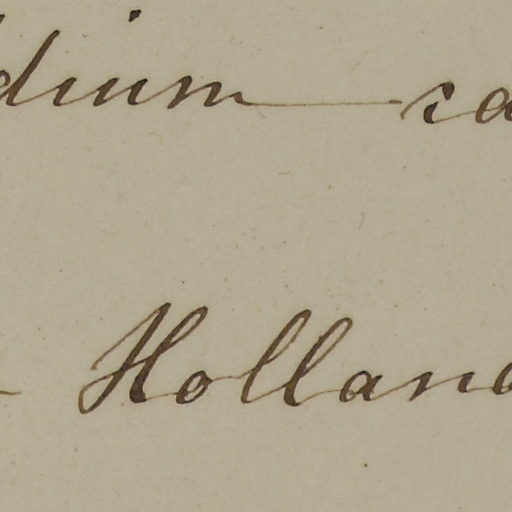 dium sa
Holland